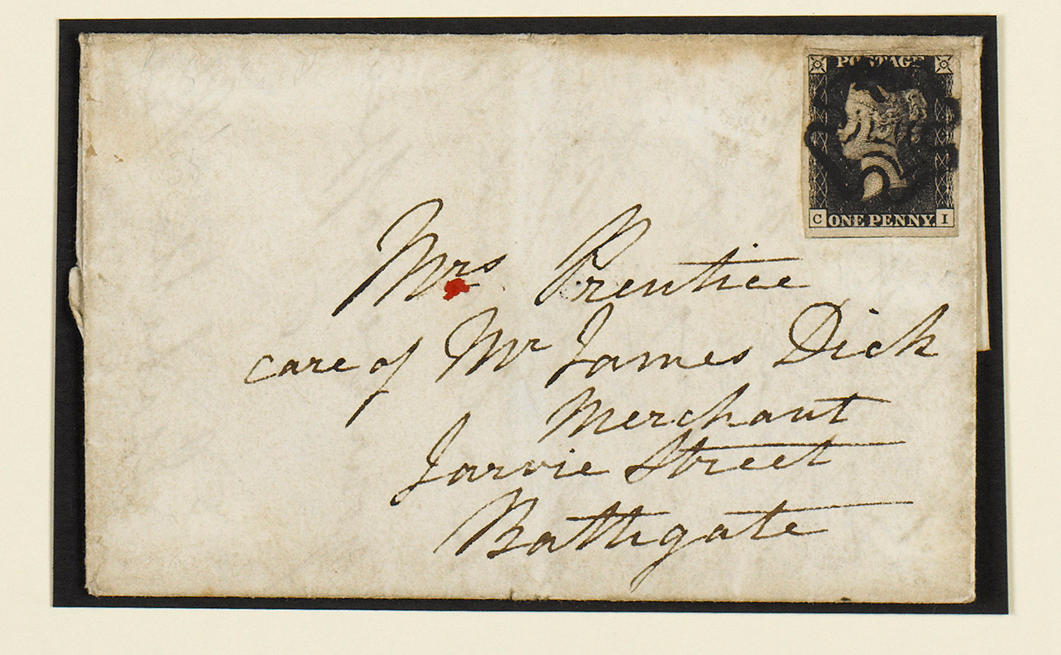 POSTAGE
C ONE PENNY. I
Mrs Prentice
care of Mr James Dick
Merchant
Jarvie Street
Bathgate